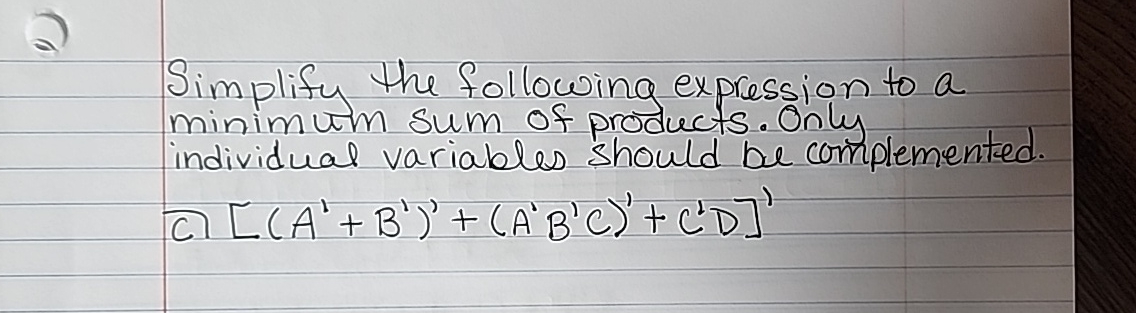 Simplify the following expression to a
minimum sum of products. Only
individual variables should be complemented.
c) [(A'+B')'+(A'B'C)'+C'D]'